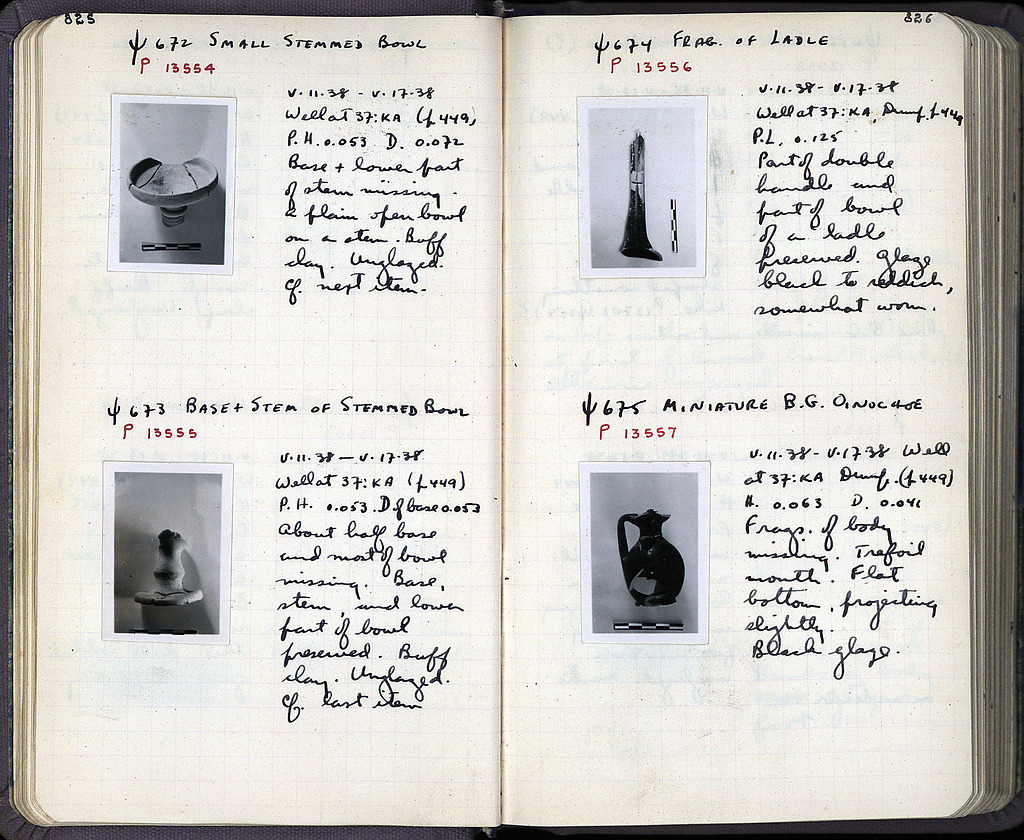 825
ψ 672 SMALL STEMMED BOWL
P 13554
V.11.38 - V.17.38
Well at 37:KA (p.449)
P.H. 0.053 D. 0.072
Base + lower part
of stem missing.
A plain open bowl
on a stem. Buff
clay. Unglazed.
Cf. next item.
ψ 673 BASE + STEM OF STEMMED BOWL
P 13555
V.11.38 — V.17.38
Well at 37:KA (p.449)
P.H. 0.053. D of base 0.053
About half base
and most of bowl
missing. Base,
stem, and lower
part of bowl
preserved. Buff
clay. Unglazed.
Cf. last item
826
ψ 674 FRAG. OF LADLE
P 13556
V.11.38 - V.17.38
Well at 37:KA, Dump. p.449
P.L. 0.125
Part of double
handle and
part of bowl
of a ladle
preserved. Glaze
black to reddish,
somewhat worn.
ψ 675 MINIATURE B.G. OINOCHOE
P 13557
V.11.38 - V.17.38 Well
at 37:KA Dump. (p.449)
H. 0.063 D. 0.041
Frags. of body
missing. Trefoil
mouth. Flat
bottom, projecting
slightly.
Black glaze.